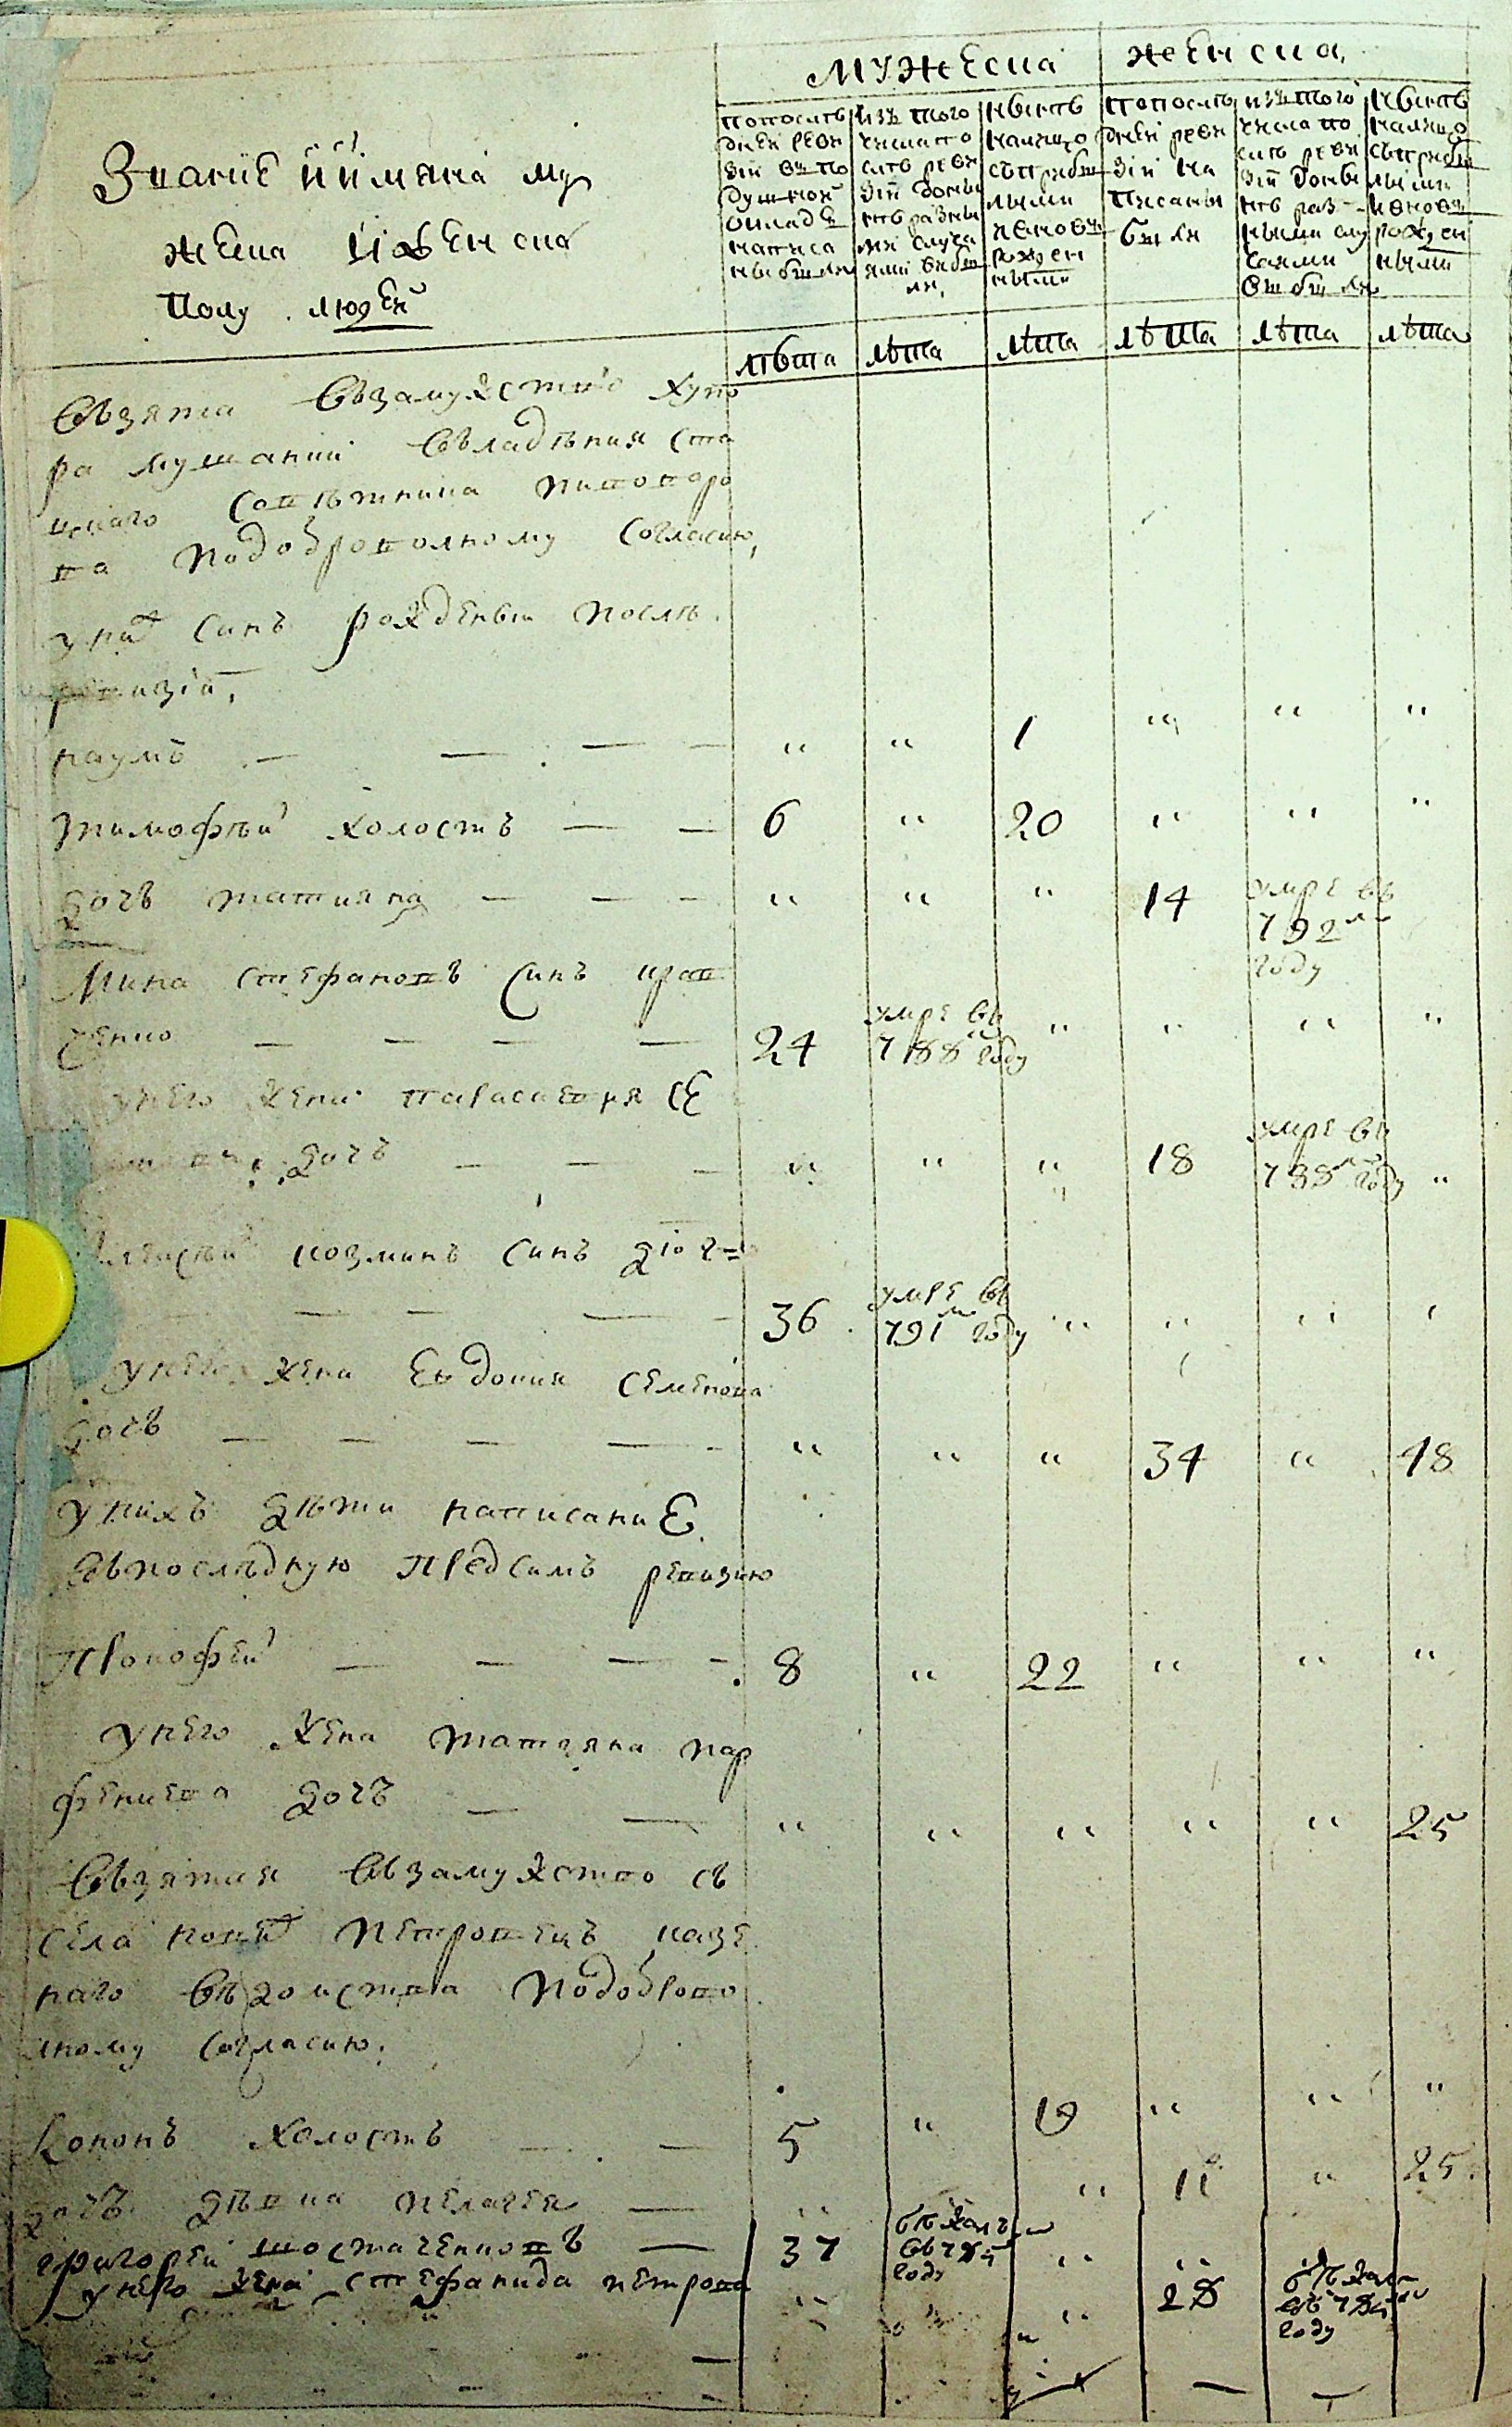 Мужеска женска
Звание и имяна му
жеска и женска
полу людей
попослѣ
дней реви
зіи въ по
душной
окладъ
написа
ны были
изъ того
числа по
слѣ реви
зіи доны
нѣ разны
ми случа
ями выбы
ли,
нынѣ
налицо
съприбы
лыми
ивновь
рожден
ными
попослѣ
дней реви
зіи на
писаны
были
изъ того
числа по
слѣ реви
зіи доны
нѣ раз
ными слу
чаями
выбыли
нынѣ
налицо
съприбы
лыми
ивновь
рожден
ными
лѣта лѣта лѣта лѣта лѣта лѣта
Овзята взамужство хуто
ра мушании владѣния ста
цкаго совѣтника
ва подоброволному согласию,
уних синъ рожденый послѣ
ревизіи,
наумъ — — — — " " 1 " " "
тимофѣй холостъ — — 6 " 20 " " "
дочъ татияна — — — " " " 14 умре въ 792м году
Мина стефановъ синъ крав
ченко — — — — 24 умре въ 788м году " " " "
унего жена параскевия се
дочъ — — — " " " 18 умре въ 788м году "
козминъ синъ дяч
— — — — 36 умре въ 791м году " " " "
унего жена Евдокия семенова
дочъ — — — — " " " 34 " 48
унихъ дѣти написание
впослѣдную предсимъ ревизию
Прокофей — — — — 8 " 22 " " "
унего жена татяна пар
фениева дочъ — — " " " " " 25
взятая взамужство съ
села нових петровецъ казе
наго вѣдомства подоброво
лному согласию.
Кононъ холостъ — — 5 " 19 " " "
дочъ дѣвка пелагея — " " 11 " 25
григорей шостаченковъ — 37 бѣжалъ въ 785м году " "
унего жена стефанида петрова " " 28 бѣжала въ 785м году